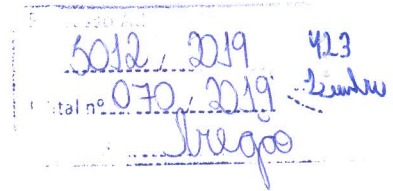 5012, 2019
423
tal nº 070, 2019
Pregão